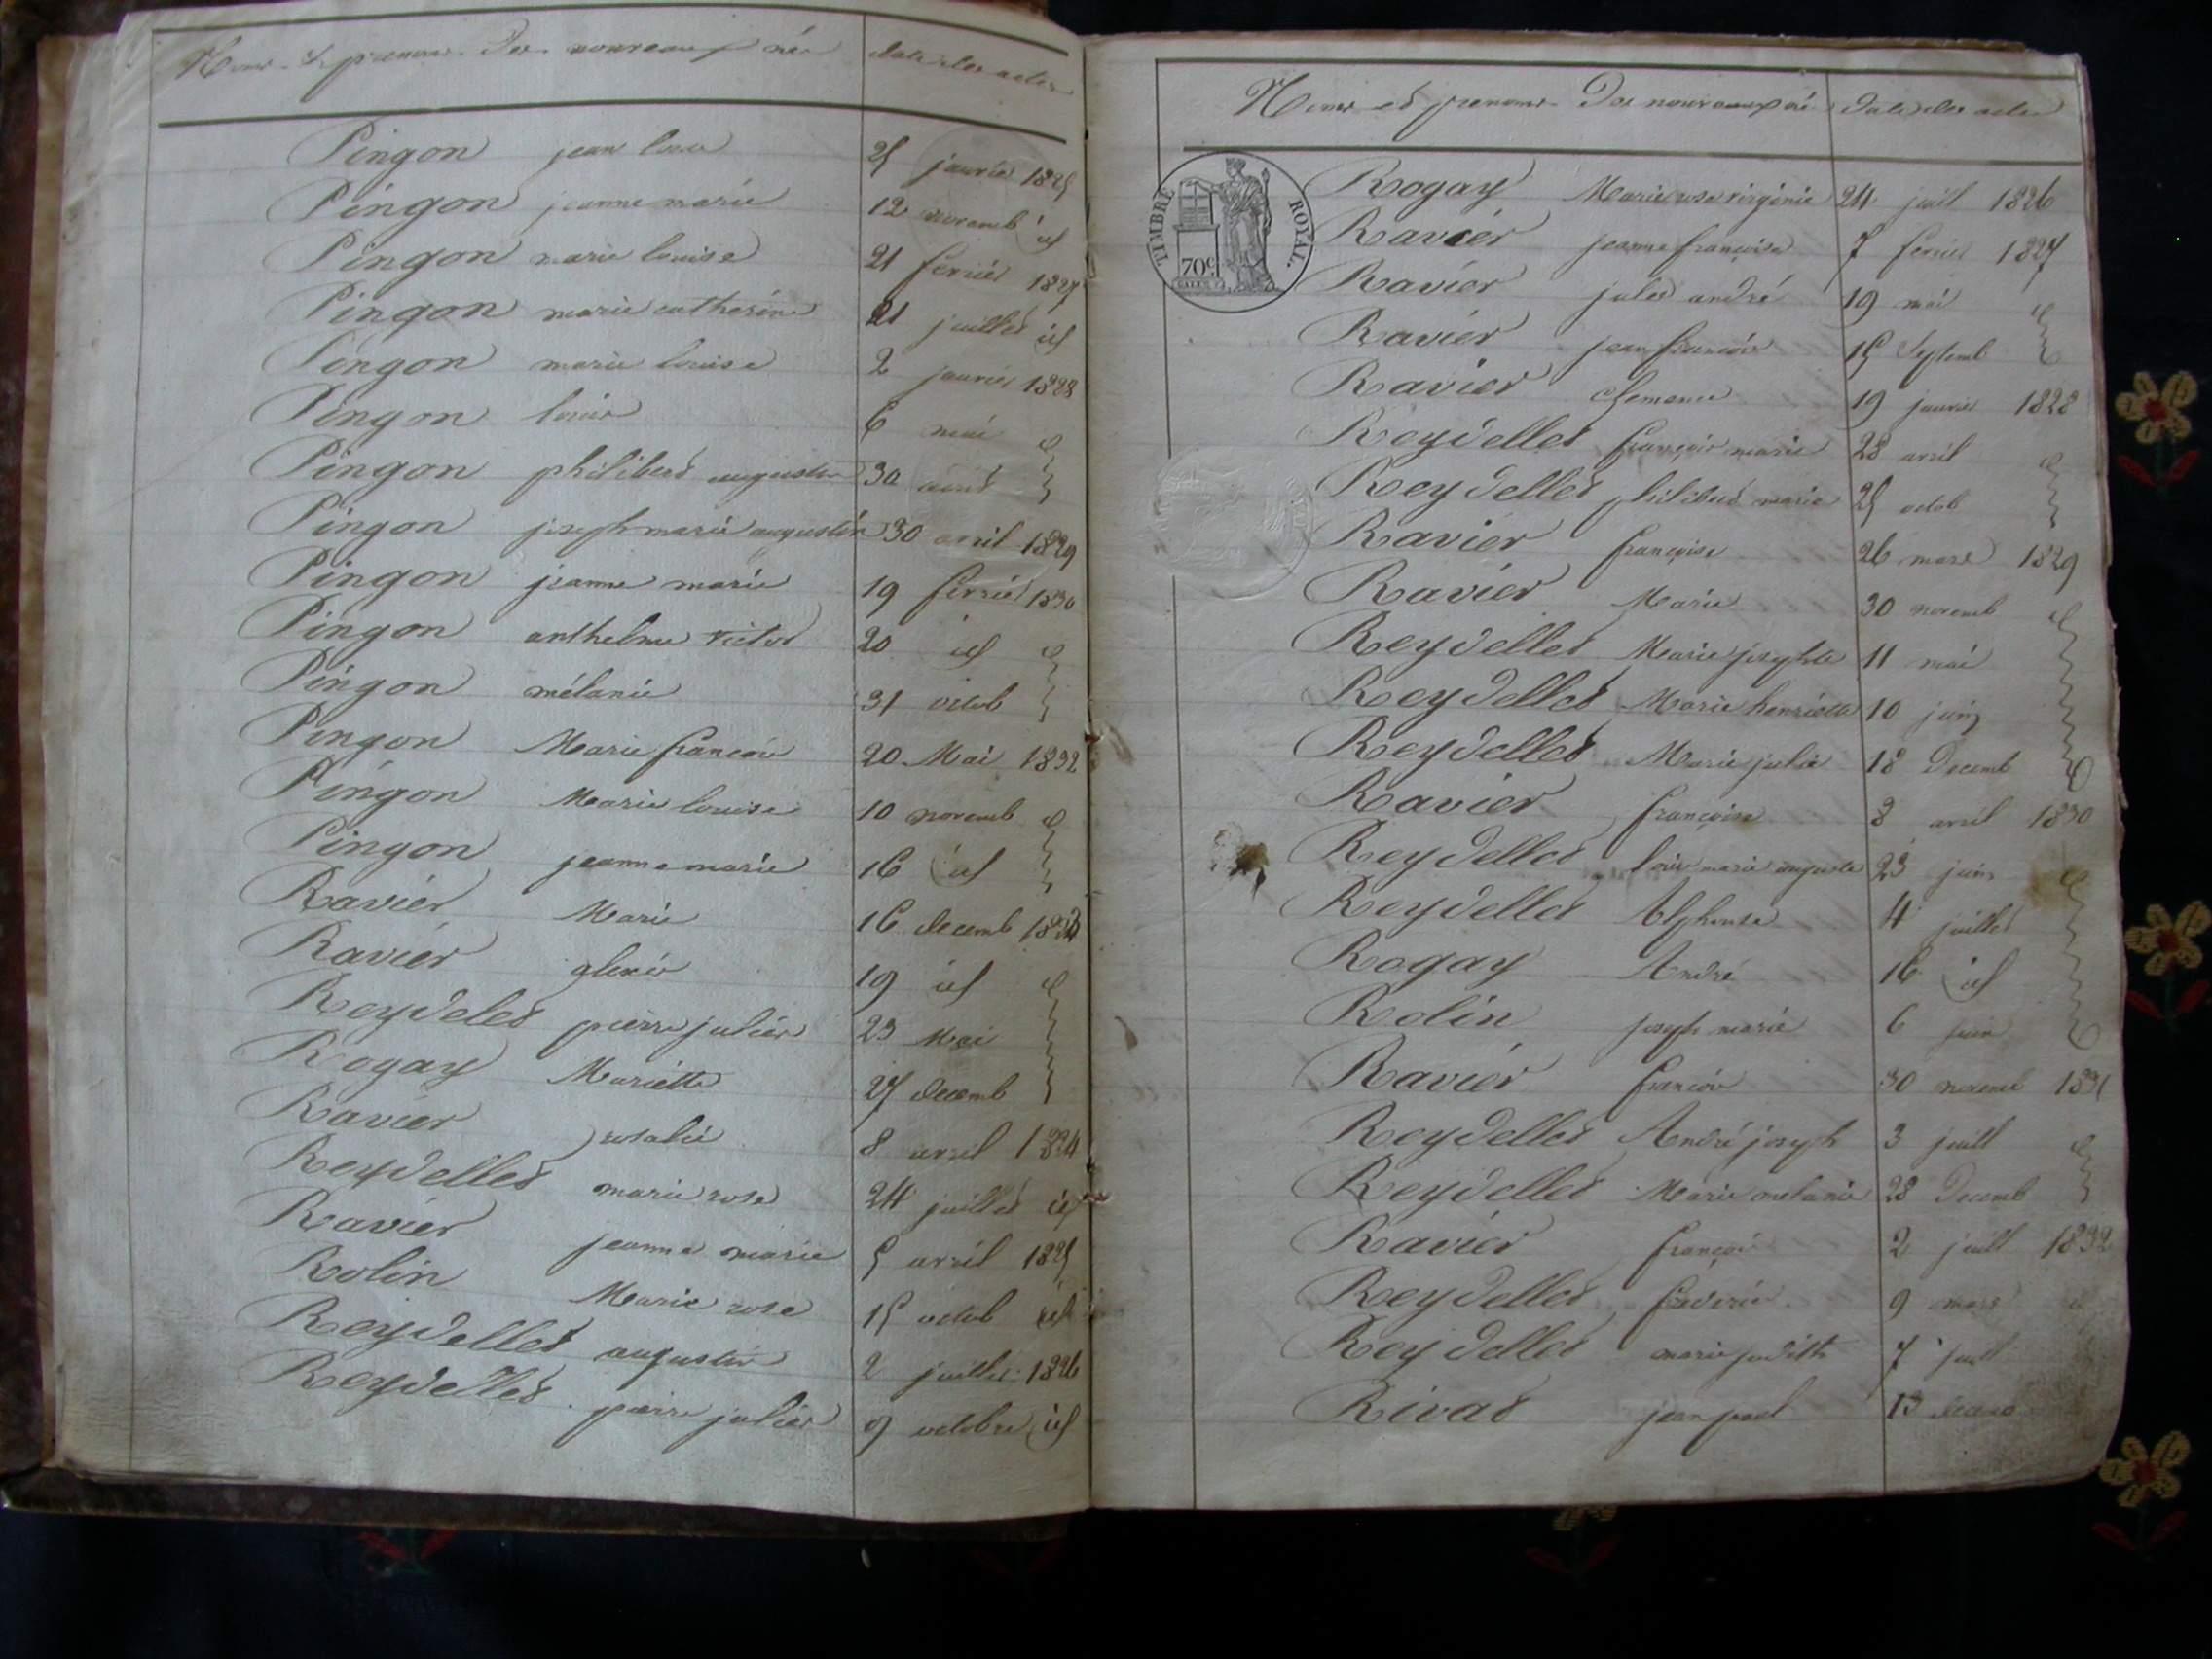 Noms & prenoms Des nouveaux né Date des actes
Pingon jean louis 25 janvie 1825
Pingon jeanne marie 12 novemb id
Pingon marie louise 21 fevrier 1827
Pingon marie catherine 21 juillet id
Pingon marie louise 2 janvier 1828
Pingon louis 6 mai
Pingon philibert augustin 30 aout
Pingon joseph marie augustin 30 avril 1829
Pingon jeanne marie 19 fevrier 1830
Pingon anthelme victor 20 id
Pingon mélanie 31 octob
Pingon Marie francois 20 Mai 1832
Pingon Marie louise 10 novemb
Pingon jeanne marie 16 id
Ravier Marie 16 decemb
Ravier 19 id
Reydelet pierre julien 23 Mai
Rogay Mariette 27 decemb
Ravier rosalie 8 avril 1824
Reydellet marie rose 24 juillet id
Ravier jeanne marie 5 avril 1825
Rolin Marie rose 15 octob id
Reydellet augustin 2 juillet 1826
Reydellet pierre julien 9 octobre id
Noms et prenoms Des nouveaux né Date des actes
TIMBRE ROYAL
70c
Rogay Marie rose virginie 24 juil 1826
Ravier jeanne françoise 7 fevrier 1827
Ravier jules andré 19 mai
Ravier jean francois 15 Septemb
Ravier clemence 19 janvie 1828
Reydellet françois marie 28 avril
Reydellet philibert marie 25 octob
Ravier françoise 26 mars 1829
Ravier Marie 30 novemb
Reydellet Marie josephte 11 mai
Reydellet Marie henriette 10 juin
Reydellet Marie julie 18 Decemb
Ravier françoise 8 avril 1830
Reydellet louis marie auguste 23 juin
Reydellet Alphonse 4 juillet
Rogay André 16 id
Rolin joseph marie 6 juin
Ravier francois 30 novemb 1831
Reydellet André joseph 3 juill
Reydellet Marie melanie 28 Decemb
Ravier françois 2 juill 1832
Reydellet frederic 9 mars
Reydellet marie judith 7 juill
Rivat jean paul 13 decemb